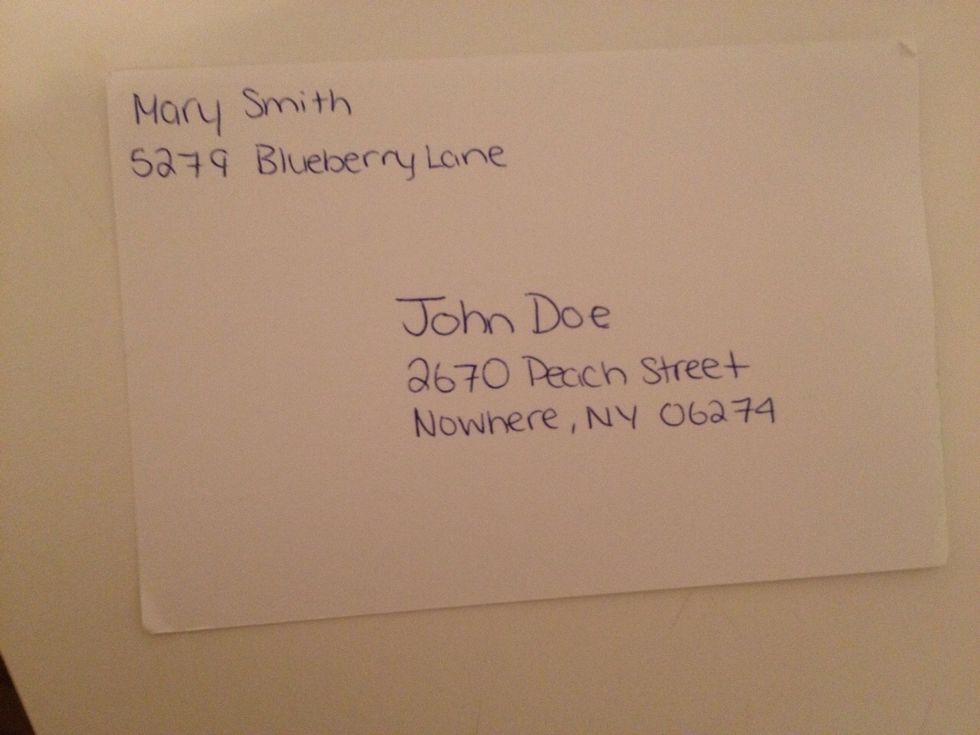 Mary Smith
5279 Blueberry Lane
John Doe
2670 Peach Street
Nowhere, NY 06274